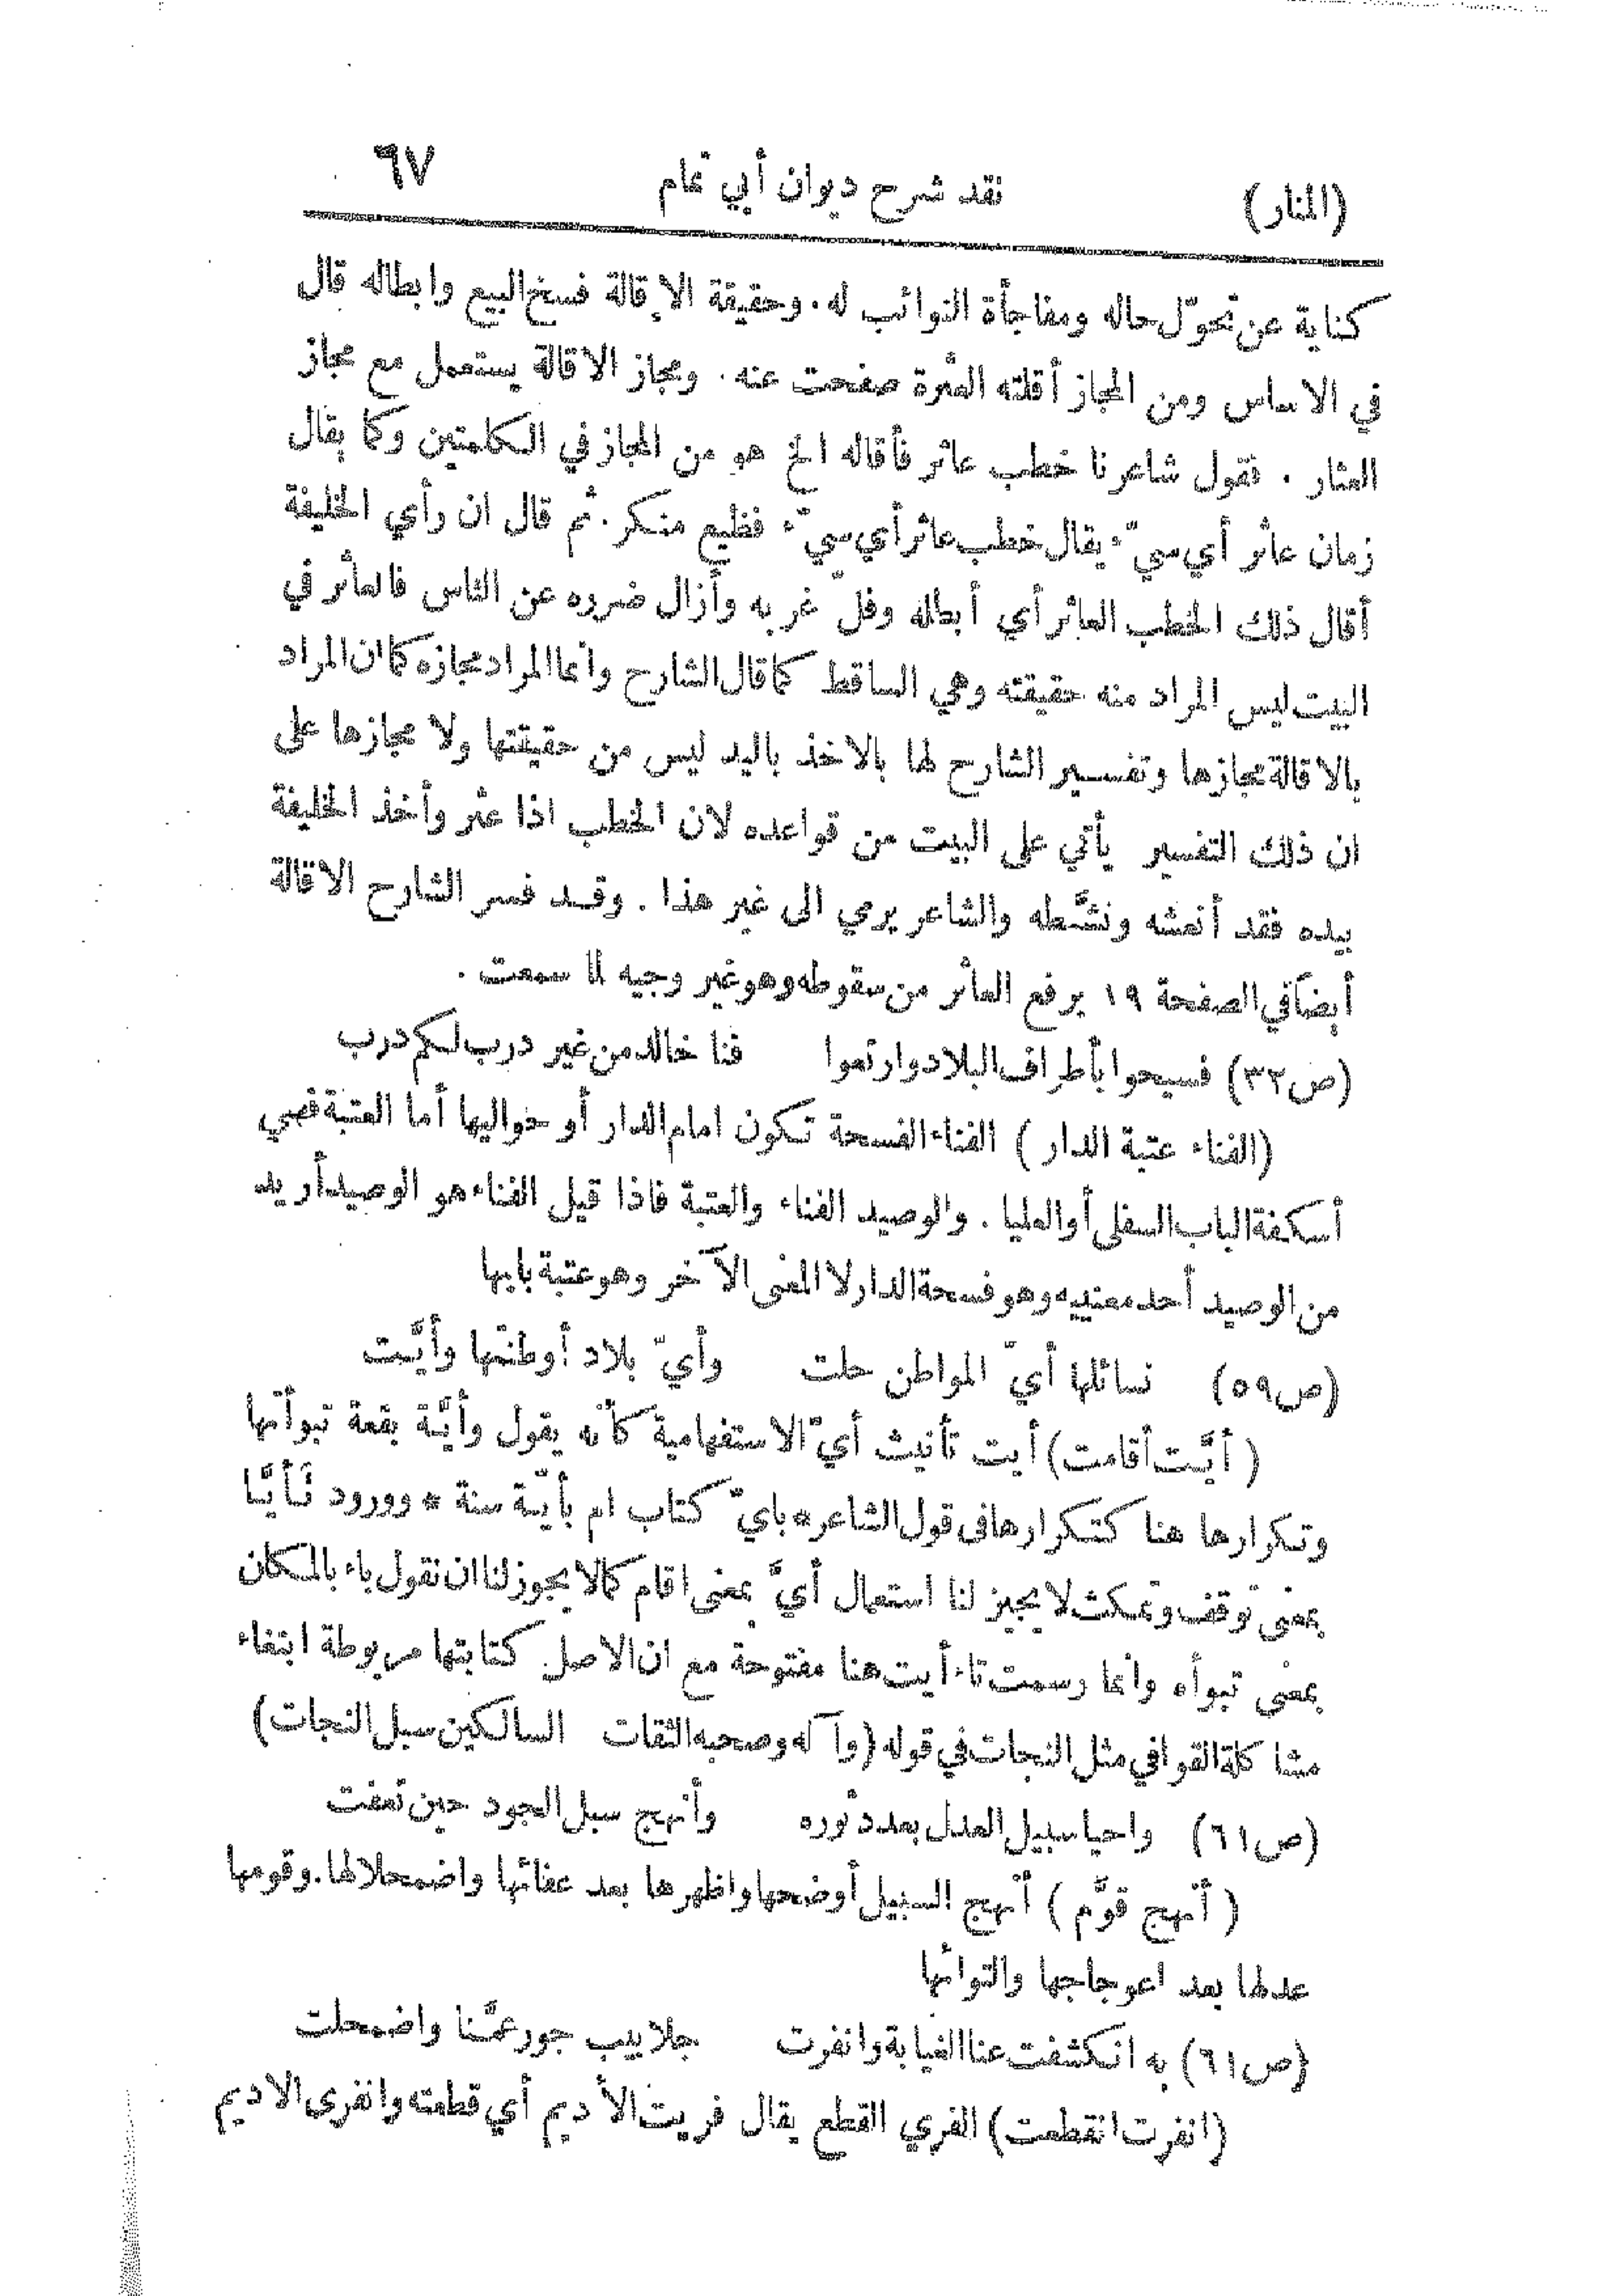 (المنار) نقد شرح ديوان أبي تمام ٦٧
كناية عن تحوّل حاله ومفاجأة النوائب له. وحقيقة الإقالة فسخ البيع وابطاله قال
في الاساس ومن المجاز أقلته العثرة صفحت عنه. ومجاز الاقالة يستعمل مع مجاز
العثار. فقول شاعرنا خطب عاثر فأقاله الخ هو من المجاز في الكلمتين وكما يقال
زمان عاثر أي سيّء يقال خطب عاثر أي سيّء فظيع منكر. ثم قال ان رأي الخليفة
أقال ذلك الخطب العاثر أي أبطله وفلّ غربه وأزال ضرره عن الناس فالعاثر في
البيت ليس المراد منه حقيقته وهي الساقط كما قال الشارح وانما المراد مجازه كما ان المراد
بالاقالة مجازها وتفسير الشارح لها بالاخذ باليد ليس من حقيقتها ولا مجازها على
ان ذلك التفسير يأتي على البيت من قواعده لان الخطب اذا عثر وأخذ الخليفة
بيده فقد أنعشه ونشَّطه والشاعر يرمي الى غير هذا. وقد فسر الشارح الاقالة
أيضاً في الصفحة ١٩ برفع العاثر من سقوطه وهو غير وجيه لما سمعت.
(ص٣٢) فسيحوا بأطراف البلاد وارتعوا فنا خالد من غير درب لكم درب
(الفناء عتبة الدار) الفناء الفسحة تكون امام الدار أو حواليها أما العتبة فهي
أسكفة الباب السفلى أو العليا. والوصيد الفناء والعتبة فاذا قيل الفناء هو الوصيد أريد
من الوصيد أحد معنييه وهو فسحة الدار لا المعنى الآخر وهو عتبة بابها
(ص٥٩) نسائلها أيّ المواطن حلت وأيّ بلاد أوطنتها وأيَّت
(أيَّت أقامت) أيت تأنيث أيّ الاستفهامية كأنه يقول وأيَّة بقعة تبوأتها
وتكرارها هنا كتكرارها في قول الشاعر * بايّ كتاب ام بأيّة سنة * وورود تَأَيَّا
بمعنى توقف وتمكث لا يجيز لنا استعمال أيَّ بمعنى اقام كما لا يجوز لنا ان نقول باء بالمكان
بمعنى تبوأه وانما رسمت تاء أيت هنا مفتوحة مع ان الاصل كتابتها مربوطة ابتغاء
مشاكلة القوافي مثل النجات في قوله (وآله وصحبه الثقات السالكين سبل النجات)
(ص٦١) واحيا سبيل العدل بعد دثوره وأنهج سبل الجود حين تعفت
(أنهج قوَّم) أنهج السبيل أوضحها واظهرها بعد عفائها واضمحلالها. وقومها
عدلها بعد اعوجاجها والتوائها
(ص٦١) به انكشفت عنا الغيابة وانفرت جلابيب جور عمَّنا واضمحلت
(انفرت انقطعت) الفري القطع يقال فريت الأديم أي قطعته وانفرى الاديم